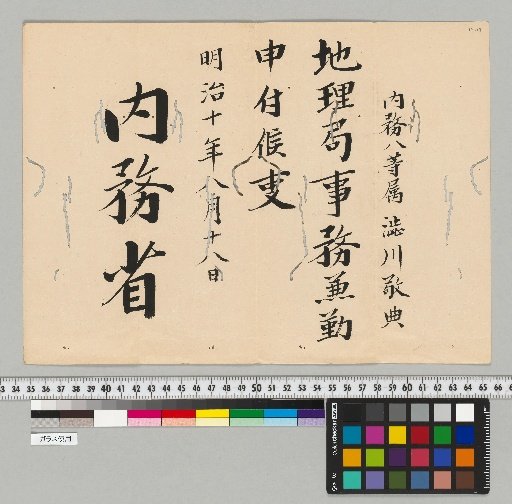 内務八等属 澁川敬典
地理局事務兼勤
申付候事
明治十年八月十八日
内務省
33 34 35 36 37 38 39 40 41 42 43 44 45 46 47 48 49 50 51 52 53 54 55 56 57 58 59 60 61 62 63 64 65 66
ガラス使用